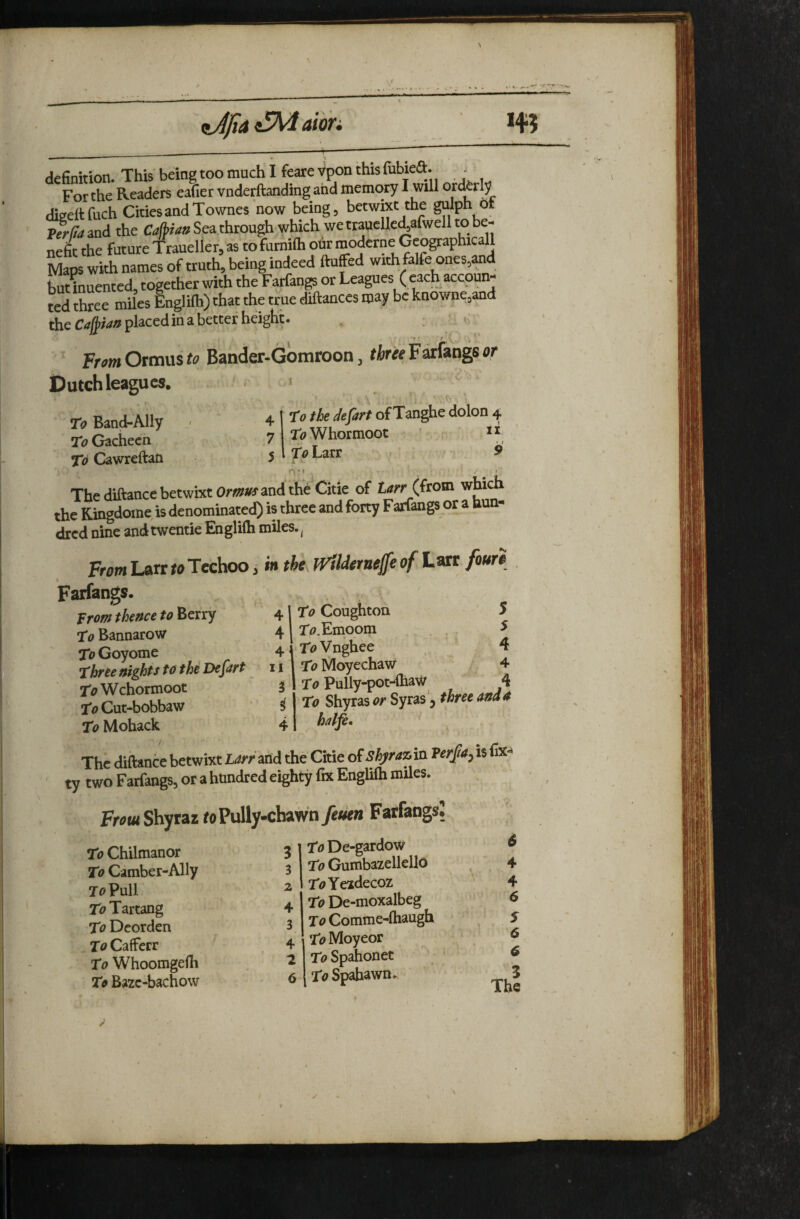 Asia Maior. 143
definition. This being too much I feare vpon this ſubiect.
For the Readers eaſier vnderſtanding and memory I will orderly
digeſt ſuch Cities and Townes now being, betwixt the gulph of
Perſia and the Caſpian Sea through which we trauelled, aſwell to be-
nefit the future Traueller, as to furniſh our moderne Geographicall
Maps with names of truth, being indeed ſtuffed with falſe ones, and
but inuented, together with the Farſangs or Leagues (each accoun-
ted three miles Engliſh) that the true diſtances may be knowne, and
the Caſpian placed in a better height.
From Ormus to Bander-Gomroon, three Farſangs or
Dutch leagues.
To Band-Ally 4
To Gacheen 7
To Cawreſtan 5
To the deſart of Tanghe dolon 4
To Whormoot 11
To Larr 9
The diſtance betwixt Ormus and the Citie of Larr (from which
the Kingdome is denominated) is three and forty Farſangs or a hun-
dred nine and twentie Engliſh miles.
From Larr to Techoo, in the Wilderneſſe of Larr foure
Farſangs.
From thence to Berry 4
To Bannarow 4
To Goyome 4
Three nights to the Deſart 11
To Wchormoot 3
To Cut-bobbaw 5
To Mohack 4
To Coughton 5
To. Emoom 5
To Vnghee 4
To Moyechaw 4
To Pully-pot-ſhaw 4
To Shyras or Syras, three and a
halfe.
The diſtance betwixt Larr and the Citie of Shyraz in Perſia, is ſix-
ty two Farſangs, or a hundred eighty ſix Engliſh miles.
From Shyraz to Pully-chawn ſeuen Farſangs.
To Chilmanor 3
To Camber-Ally 3
To Pull 2
To Tartang 4
To Deorden 3
To Cafferr 4
To Whoomgeſh 2
To Baze-bachow 6
To De-gardow 6
To Gumbazellello 4
To Yezdecoz 4
To De-moxalbeg 6
To Comme-ſhaugh 5
To Moyeor 6
To Spahonet 6
To Spahawn. 3
The